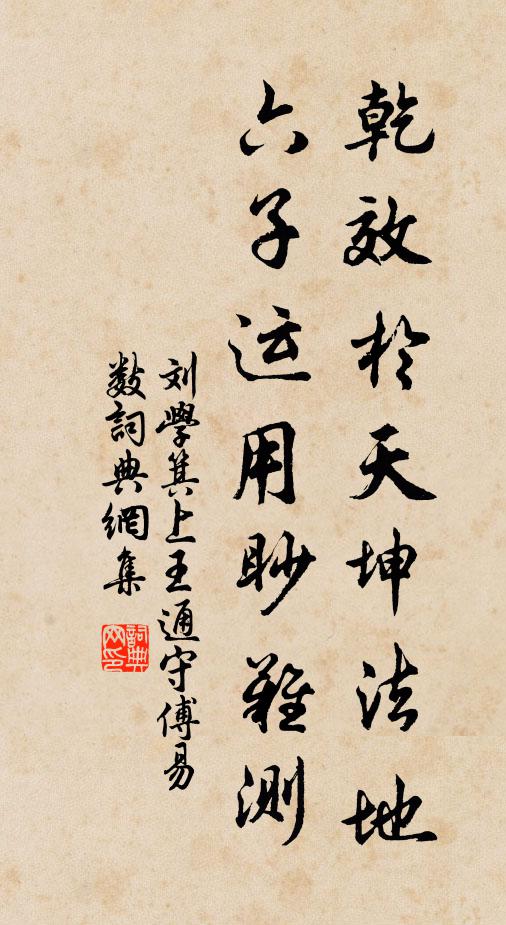 乾效於天坤法地
六子运用眇難測
刘學箕上王通守傅易
数詞典網集
詞典網印